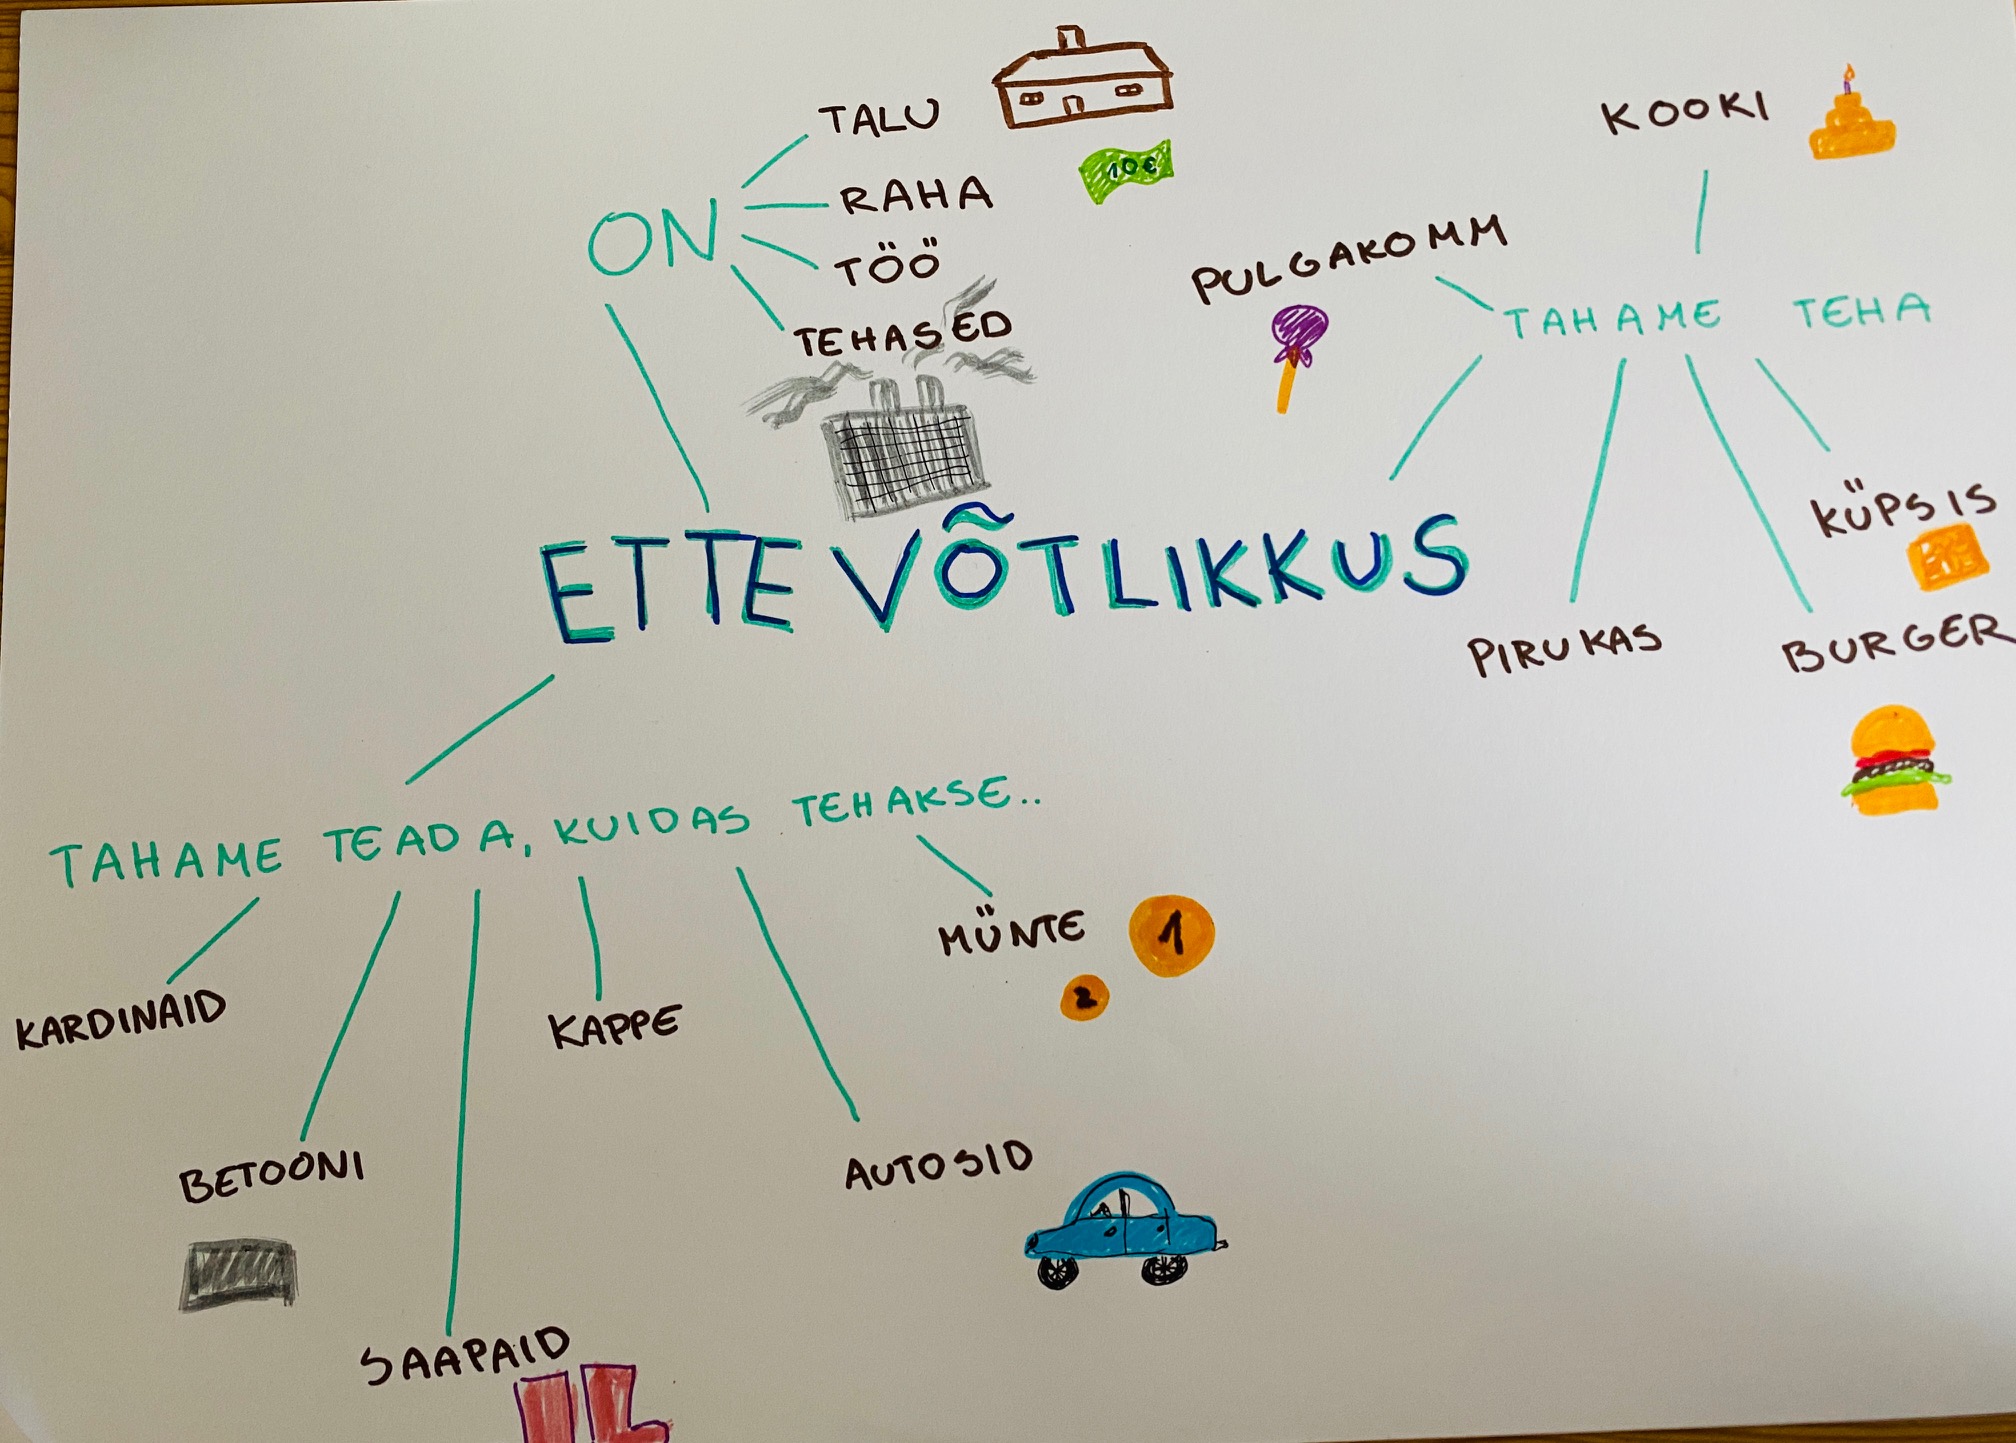 TALU
RAHA
10€
TÖÖ
TEHASED
ON
KOOKI
PULGAKOMM
TAHAME TEHA
KÜPSIS
PIRUKAS
BURGER
ETTEVÕTLIKKUS
TAHAME TEADA, KUIDAS TEHAKSE..
MÜNTE
1
2
KARDINAID
KAPPE
BETOONI
AUTOSID
SAAPAID